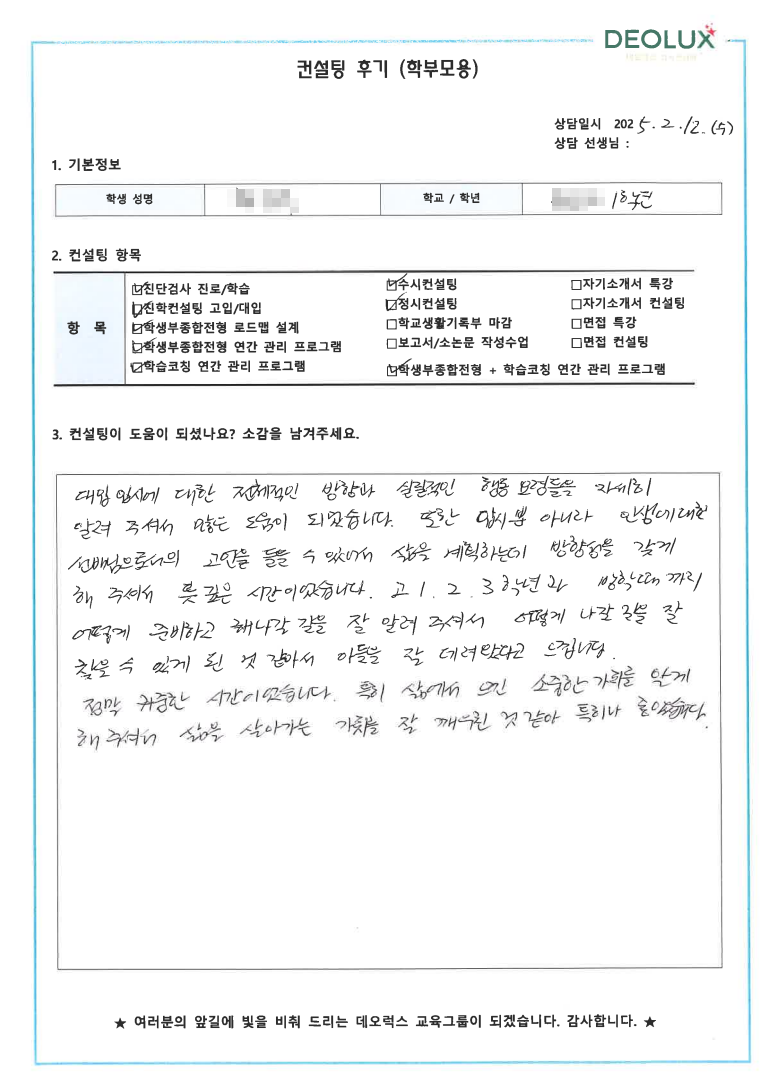 DEOLUX
컨설팅 후기 (학부모용)
상담일시 2025. 2. 12. (수)
상담 선생님 :
1. 기본정보
학생 성명 학교 / 학년 1학년
2. 컨설팅 항목
항 목
진단검사 진로/학습 수시컨설팅 자기소개서 특강
진학컨설팅 고입/대입 정시컨설팅 자기소개서 컨설팅
학생부종합전형 로드맵 설계 학교생활기록부 마감 면접 특강
학생부종합전형 연간 관리 프로그램 보고서/소논문 작성수업 면접 컨설팅
학습코칭 연간 관리 프로그램 학생부종합전형 + 학습코칭 연간 관리 프로그램
3. 컨설팅이 도움이 되셨나요? 소감을 남겨주세요.
대입 입시에 대한 전체적인 방향과 실질적인 행동 요령들을 자세히
알려 주셔서 많은 도움이 되었습니다. 또한 입시뿐 아니라 인생에 대한
선배님으로서의 고언을 들을 수 있어서 삶을 계획하는데 방향성을 갖게
해 주셔서 뜻 깊은 시간이었습니다. 고 1. 2. 3학년과 방학때까지
어떻게 준비하고 해나갈 길을 잘 알려 주셔서 어떻게 나갈 길을 잘
찾을 수 있게 된 것 같아서 아들을 잘 데려왔다고 느낍니다.
정말 귀중한 시간이었습니다. 특히 삶에서 소중한 가치를 알게
해 주셔서 삶을 살아가는 가치를 잘 깨우친 것 같아 특히나 좋았습니다.
★ 여러분의 앞길에 빛을 비춰 드리는 데오럭스 교육그룹이 되겠습니다. 감사합니다. ★